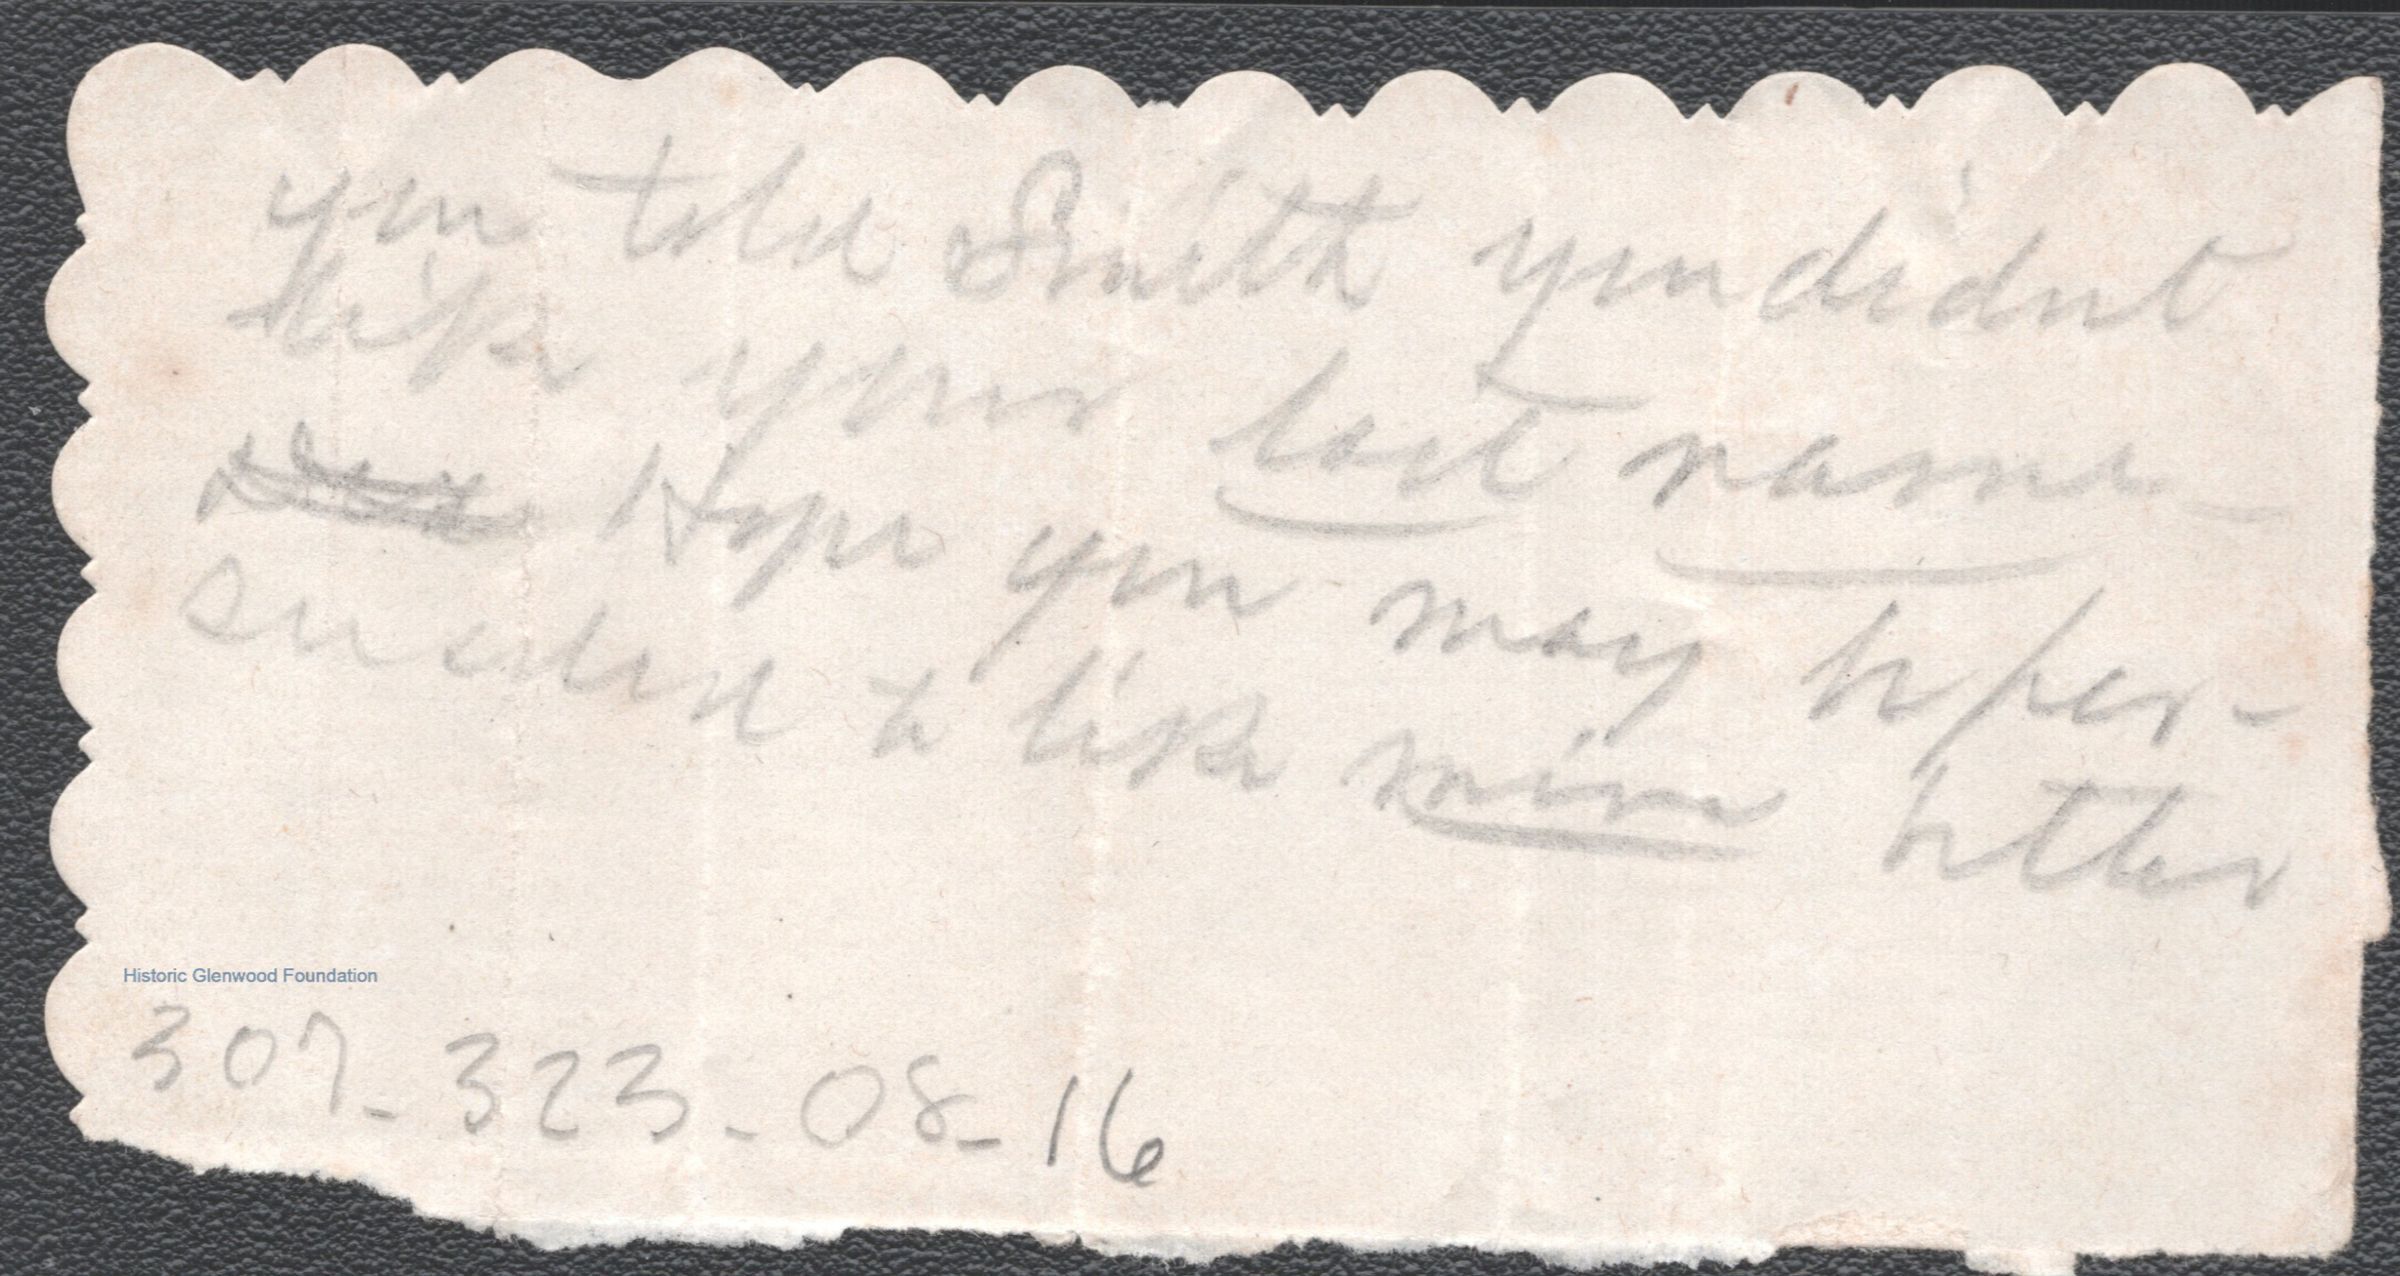 you told Smith you didnt
like your last name –
Hope you may be per-
suaded to like mine better
Historic Glenwood Foundation
307-323-08-16